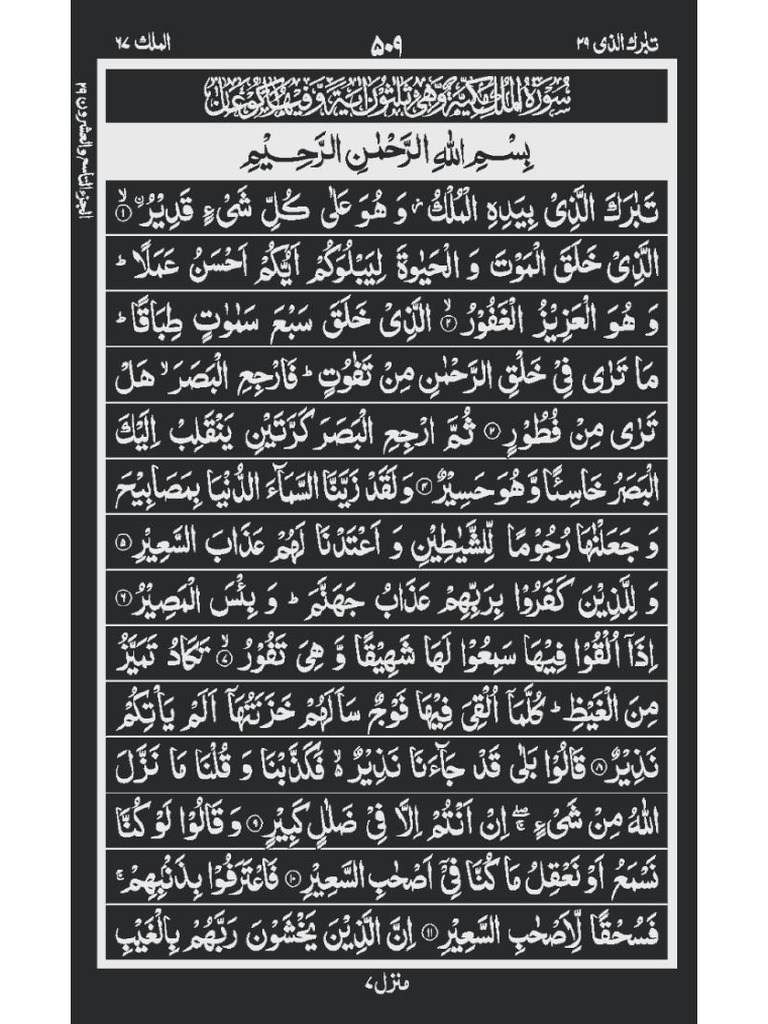 تبٰرك الذی ٢٩
۵۰۹
الملك ٦٧
الجزء التاسع والعشرون ٢٩
سُوْرَةُ الْمُلْكِ مَكِّيَّةٌ وَّهِىَ ثَلٰثُوْنَ اٰيَةً وَّفِيْهَا رُكُوْعَانِ
بِسْمِ اللّٰهِ الرَّحْمٰنِ الرَّحِيْمِ
تَبٰرَكَ الَّذِیْ بِیَدِهِ الْمُلْكُ ز وَ هُوَ عَلٰى كُلِّ شَیْءٍ قَدِیْرُ ۙ‏﴿۱﴾
الَّذِیْ خَلَقَ الْمَوْتَ وَ الْحَیٰوةَ لِیَبْلُوَكُمْ اَیُّكُمْ اَحْسَنُ عَمَلًا ؕ
وَ هُوَ الْعَزِیْزُ الْغَفُوْرُ ۙ﴿۲﴾ الَّذِیْ خَلَقَ سَبْعَ سَمٰوٰتٍ طِبَاقًا ؕ
مَا تَرٰى فِیْ خَلْقِ الرَّحْمٰنِ مِنْ تَفٰوُتٍ ؕ فَارْجِعِ الْبَصَرَ ۙ هَلْ
تَرٰى مِنْ فُطُوْرٍ ﴿۳﴾ ثُمَّ ارْجِعِ الْبَصَرَ كَرَّتَیْنِ یَنْقَلِبْ اِلَیْكَ
الْبَصَرُ خَاسِئًا وَّ هُوَ حَسِیْرٌ ﴿۴﴾ وَ لَقَدْ زَیَّنَّا السَّمَآءَ الدُّنْیَا بِمَصَابِیْحَ
وَ جَعَلْنٰهَا رُجُوْمًا لِّلشَّیٰطِیْنِ وَ اَعْتَدْنَا لَهُمْ عَذَابَ السَّعِیْرِ ﴿۵﴾
وَ لِلَّذِیْنَ كَفَرُوْا بِرَبِّهِمْ عَذَابُ جَهَنَّمَ ؕ وَ بِئْسَ الْمَصِیْرُ ﴿۶﴾
اِذَاۤ اُلْقُوْا فِیْهَا سَمِعُوْا لَهَا شَهِیْقًا وَّ هِیَ تَفُوْرُ ۙ﴿۷﴾ تَكَادُ تَمَیَّزُ
مِنَ الْغَیْظِ ؕ كُلَّمَاۤ اُلْقِیَ فِیْهَا فَوْجٌ سَاَلَهُمْ خَزَنَتُهَاۤ اَلَمْ یَاْتِكُمْ
نَذِیْرٌ ﴿۸﴾ قَالُوْا بَلٰى قَدْ جَآءَنَا نَذِیْرٌ ۙ۬ فَكَذَّبْنَا وَ قُلْنَا مَا نَزَّلَ
اللّٰهُ مِنْ شَیْءٍ ۚۖ اِنْ اَنْتُمْ اِلَّا فِیْ ضَلٰلٍ كَبِیْرٍ ﴿۹﴾ وَ قَالُوْا لَوْ كُنَّا
نَسْمَعُ اَوْ نَعْقِلُ مَا كُنَّا فِیْۤ اَصْحٰبِ السَّعِیْرِ ﴿۱۰﴾ فَاعْتَرَفُوْا بِذَنْۢبِهِمْ ۚ
فَسُحْقًا لِّاَصْحٰبِ السَّعِیْرِ ﴿۱۱﴾ اِنَّ الَّذِیْنَ یَخْشَوْنَ رَبَّهُمْ بِالْغَیْبِ
منزل ٧